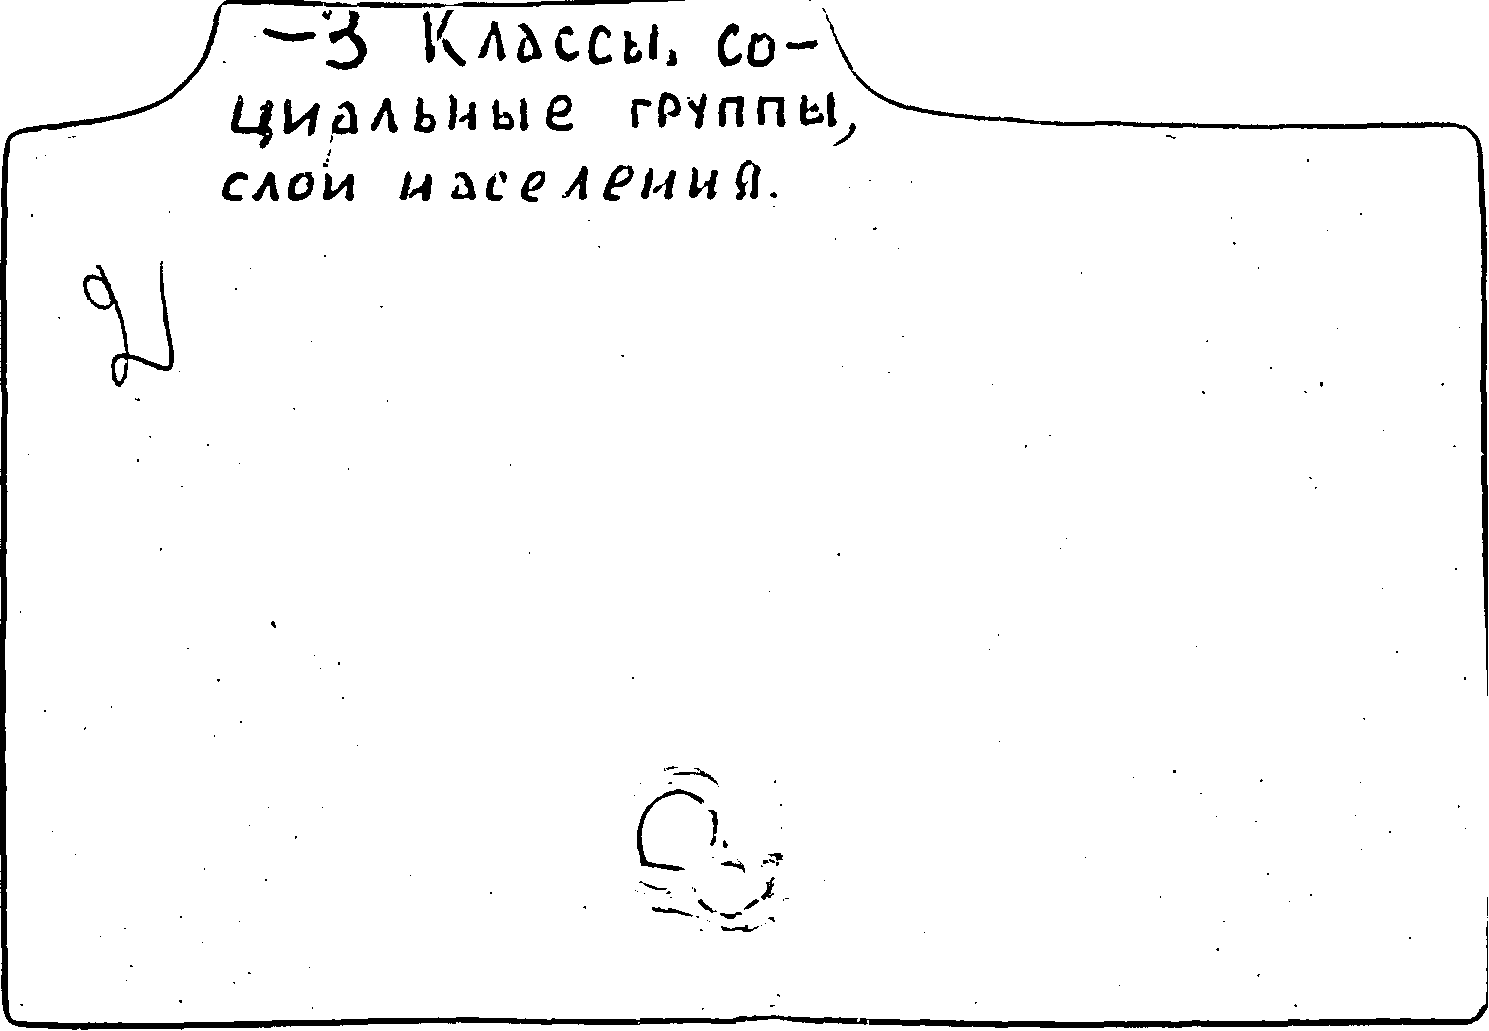 -3 Классы, со-
циальные группы,
слои населения.